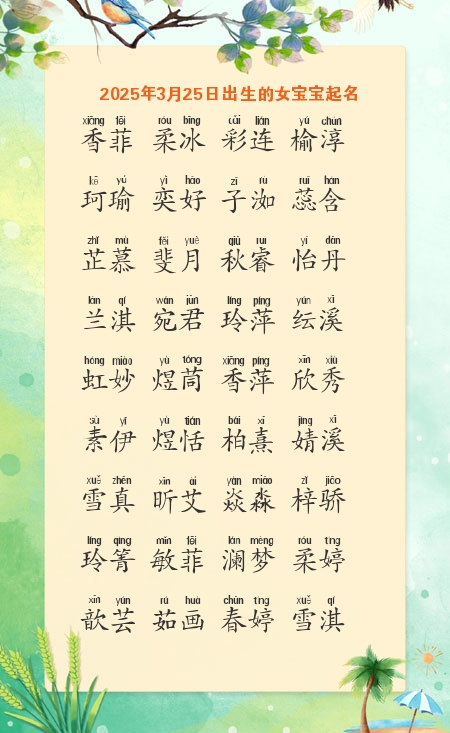 2025年3月25日出生的女宝宝起名
xiāng fēi róu bīng cǎi lián yú chún
香菲 柔冰 彩连 榆淳
kē yú yì hǎo zǐ rù ruǐ hán
珂瑜 奕好 子洳 蕊含
zhǐ mù fěi yuè qiū ruì yí dān
芷慕 斐月 秋睿 怡丹
lán qí wǎn jūn líng píng yún xī
兰淇 宛君 玲萍 纭溪
hóng miào yù tóng xiāng píng xīn xiù
虹妙 煜茼 香萍 欣秀
sù yī yù tián bǎi xī jìng xī
素伊 煜恬 柏熹 婧溪
xuě zhēn xīn ài yàn miǎo zǐ jiāo
雪真 昕艾 焱淼 梓骄
líng qìng mǐn fēi lán mèng róu tíng
玲箐 敏菲 澜梦 柔婷
xīn yún rú huà chūn tíng xuě qí
歆芸 茹画 春婷 雪淇